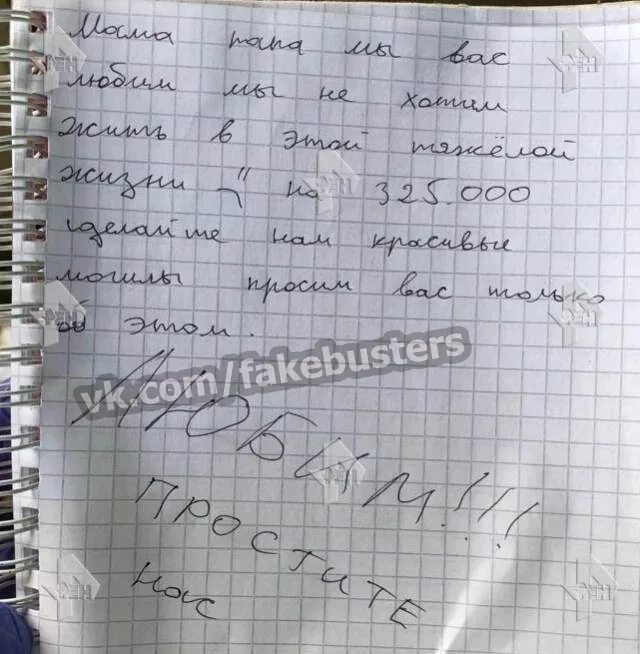 Мама папа мы вас
любим мы не хотим
жить в этой тяжёлой
жизни " на 325.000
сделайте нам красивые
могилы просим вас только
об этом.
vk.com/fakebusters
ЛЮБИМ!!!
ПРОСТИТЕ
нас